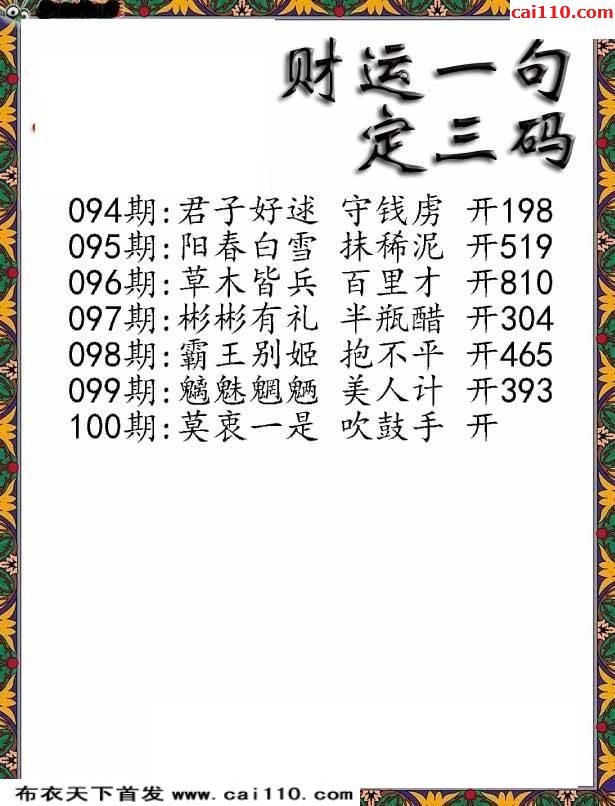 cai110.com
财运一句
定三码
094期:君子好逑 守钱虏 开198
095期:阳春白雪 抹稀泥 开519
096期:草木皆兵 百里才 开810
097期:彬彬有礼 半瓶醋 开304
098期:霸王别姬 抱不平 开465
099期:魑魅魍魉 美人计 开393
100期:莫衷一是 吹鼓手 开
布衣天下首发 www.cai110.com